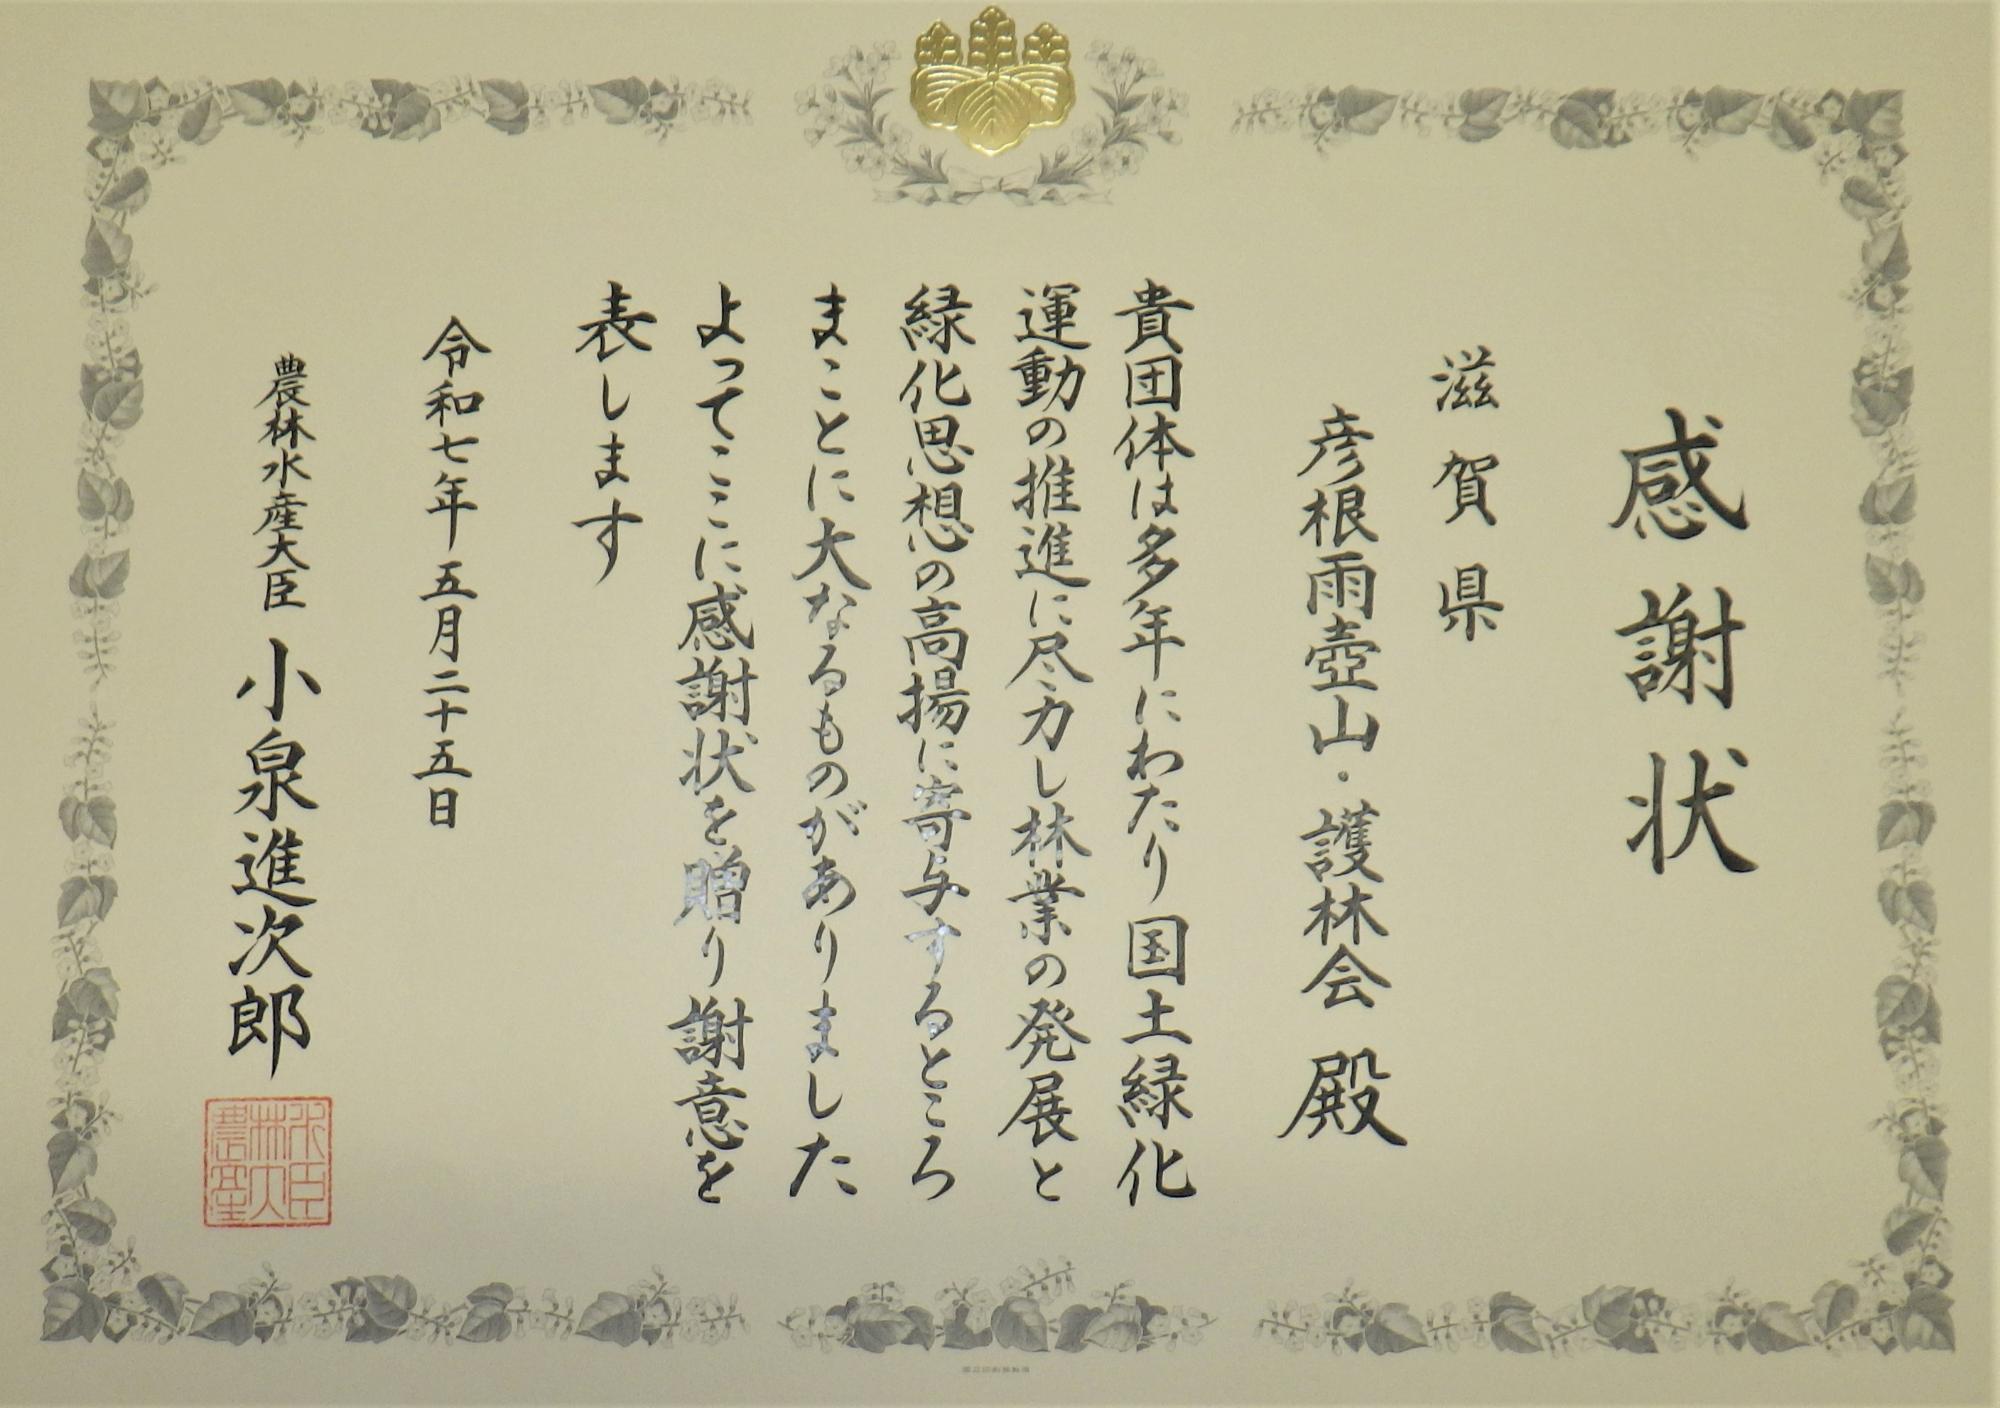 感謝状
滋賀県
彦根雨壺山・護林会 殿
貴団体は多年にわたり国土緑化
運動の推進に尽力し林業の発展と
緑化思想の高揚に寄与するところ
まことに大なるものがありました
よってここに感謝状を贈り謝意を
表します
令和七年 五月二十五日
農林水産大臣 小泉進次郎